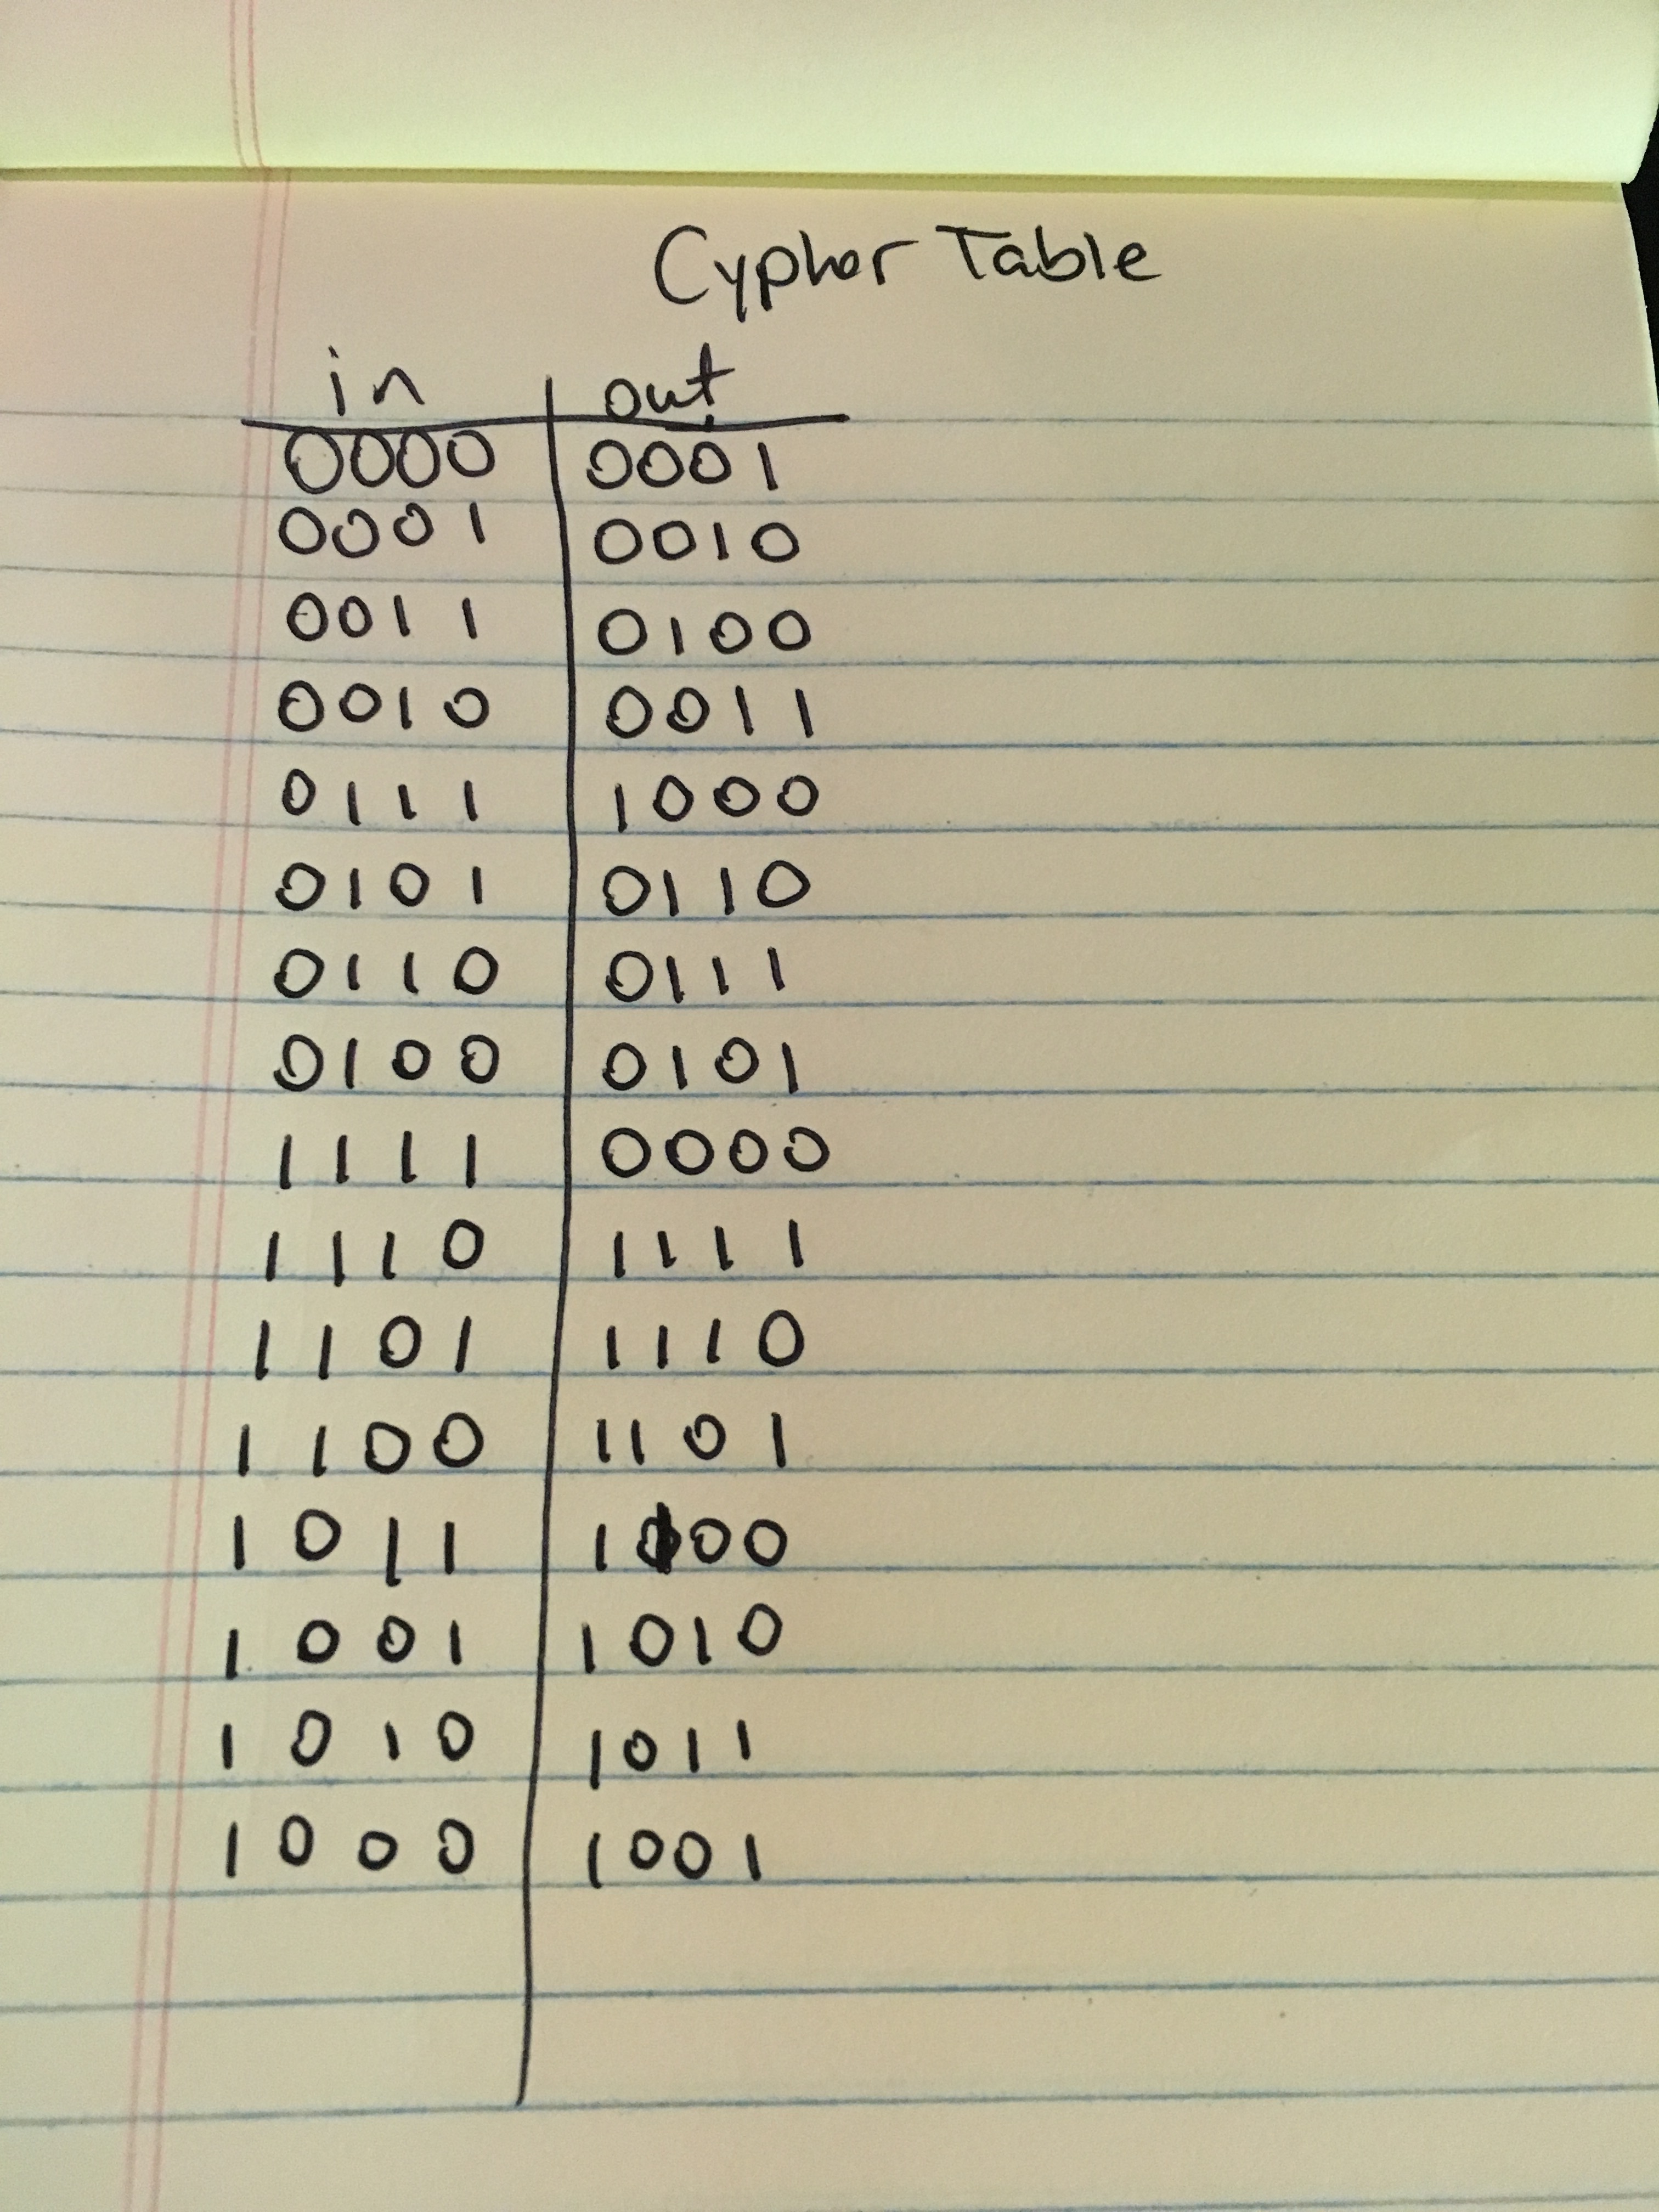 Cypher Table
in out
0000 0001
0001 0010
0011 0100
0010 0011
0111 1000
0101 0110
0110 0111
0100 0101
1111 0000
1110 1111
1101 1110
1100 1101
1011 1100
1001 1010
1010 1011
1000 1001